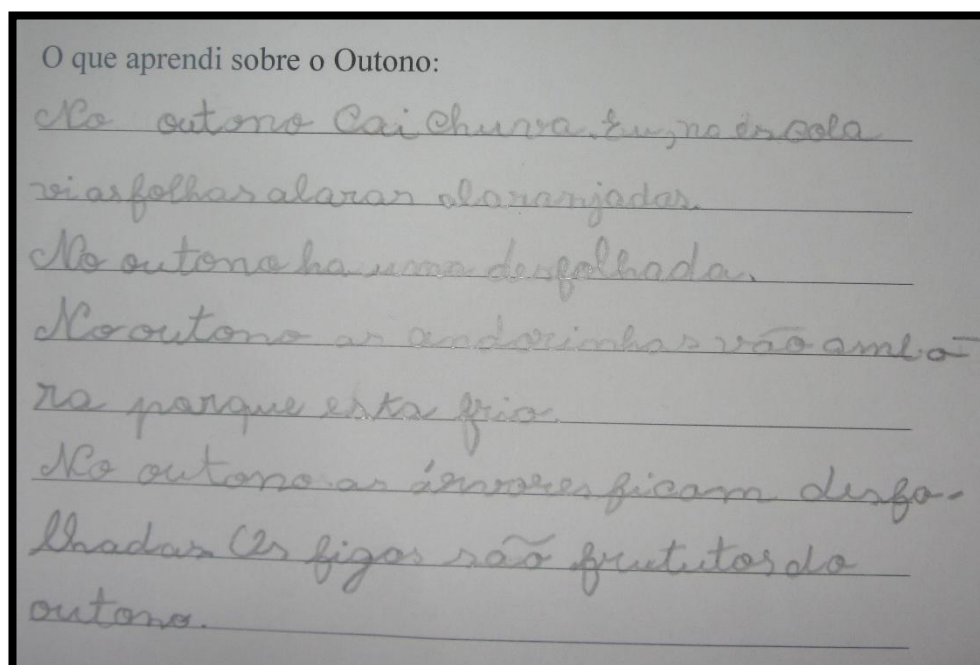 O que aprendi sobre o Outono:
No outono cai chuva. Eu, na escola
vi as folhas alaran alaranjadas.
No outono ha uma desfolhada.
No outono as andorinhas vão ambo-
ra porque esta frio.
No outono as árvores ficam desfo-
lhadas Os figos são frututos do
outono.